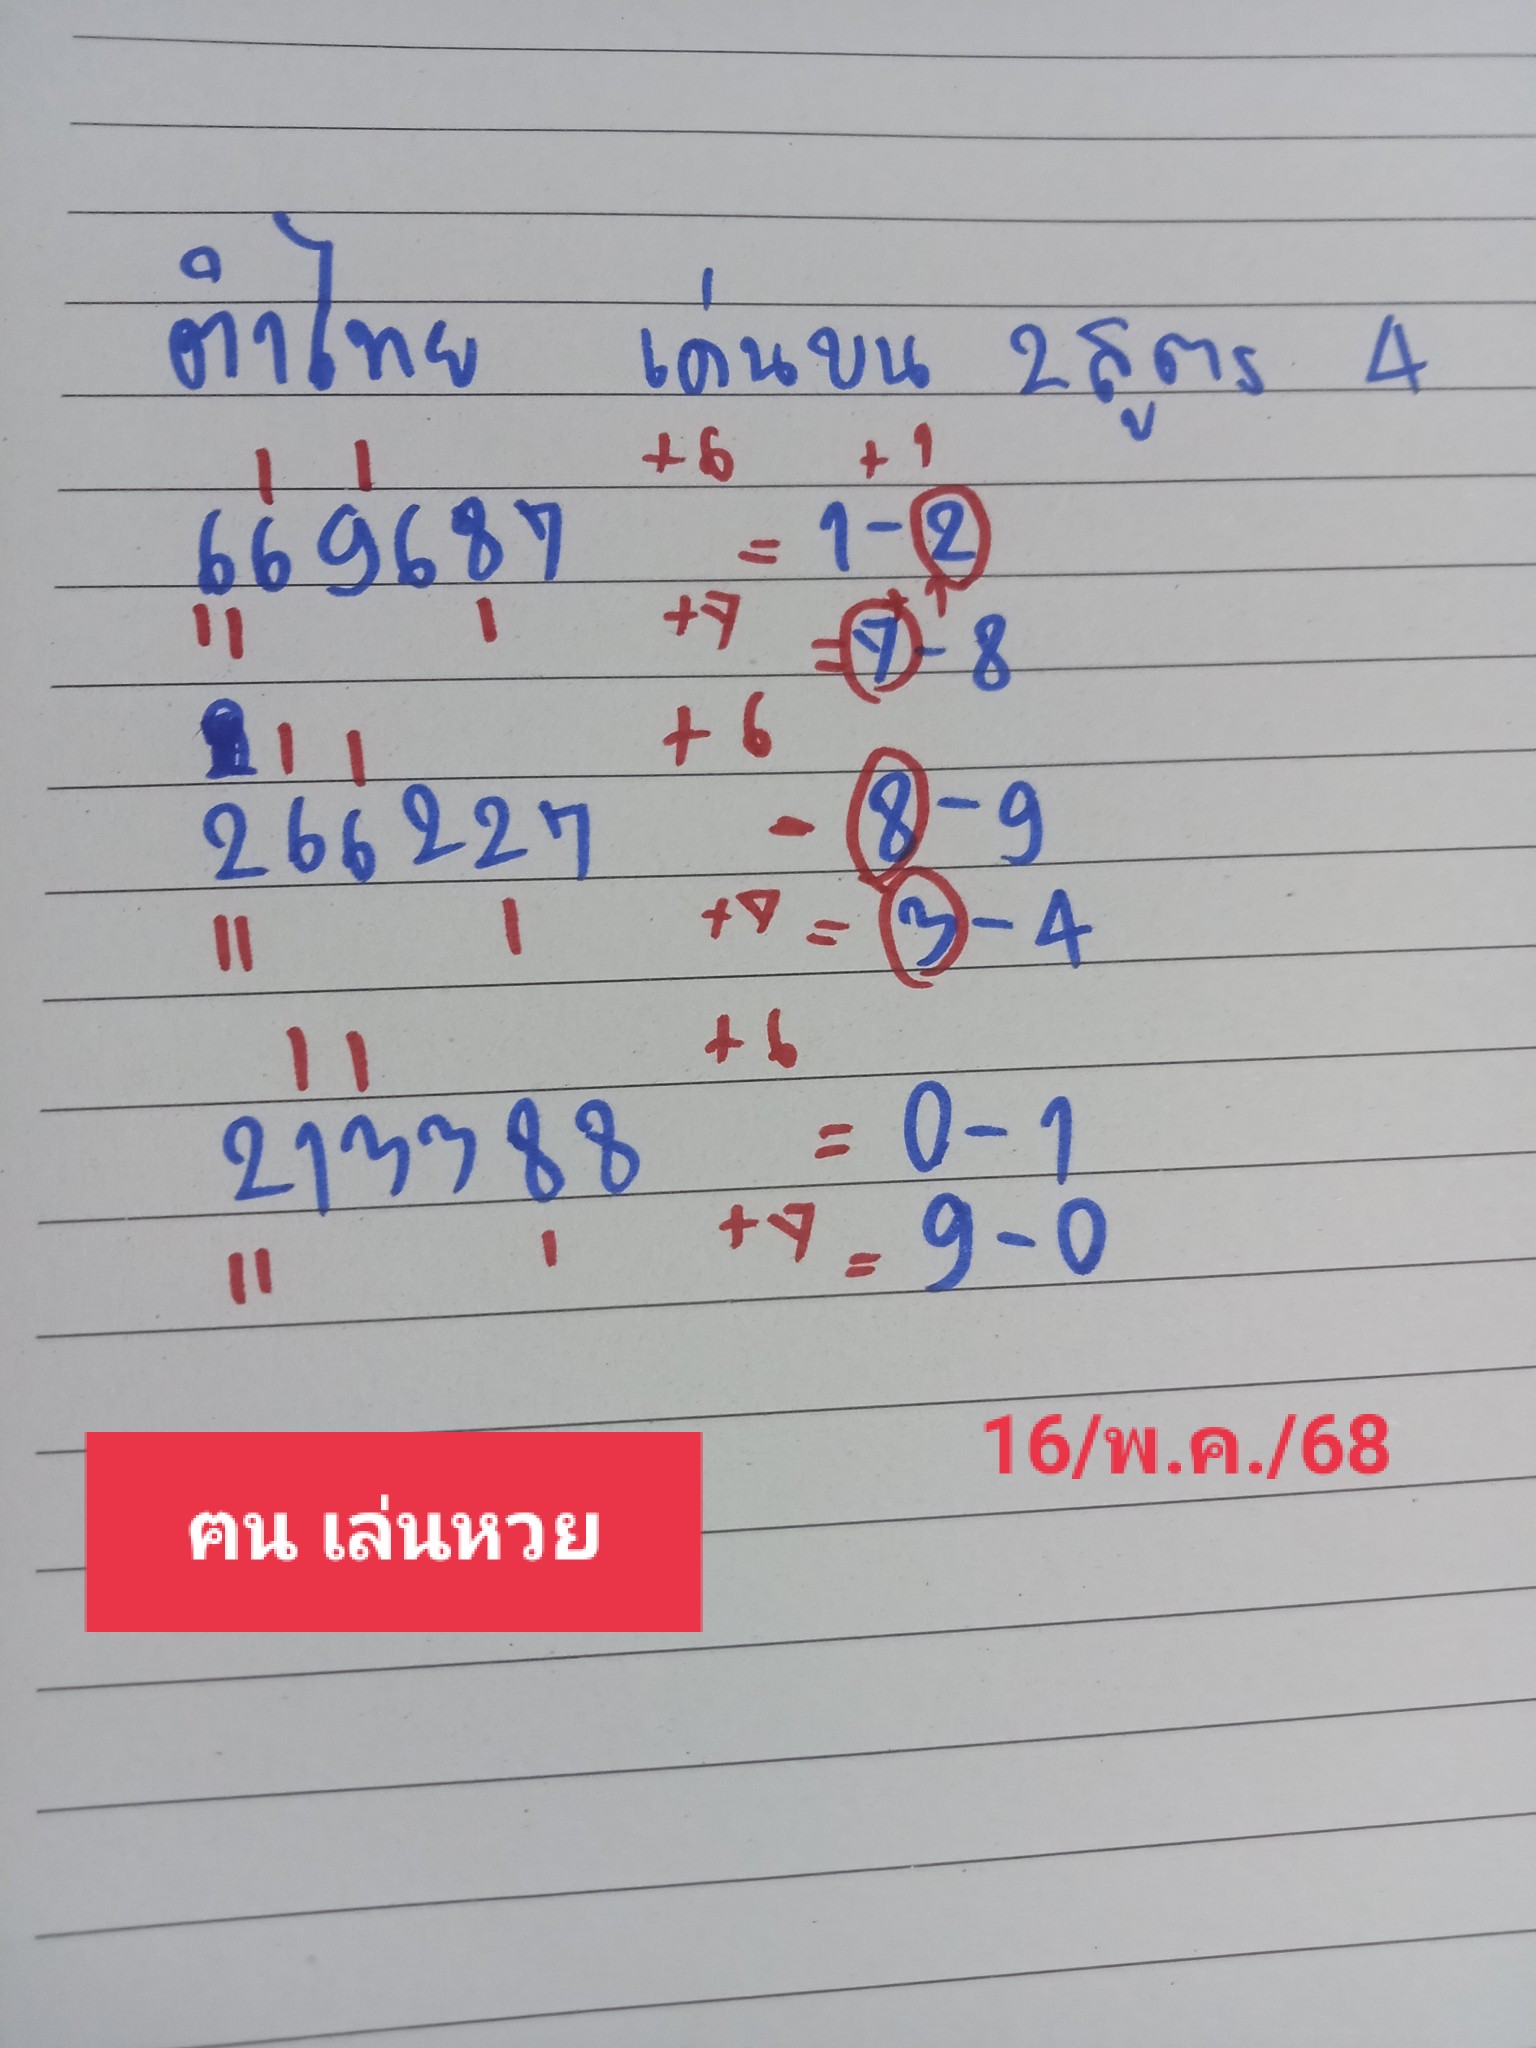 ตำไทย เด่นบน 2สูตร 4
| | +6 +1
669687 = 1-2
|| | +7 = 7-8
| | +6
266227 - 8-9
|| | +7 = 3-4
| | +6
213388 = 0-1
|| | +7 = 9-0
16/พ.ค./68
ฅน เล่นหวย